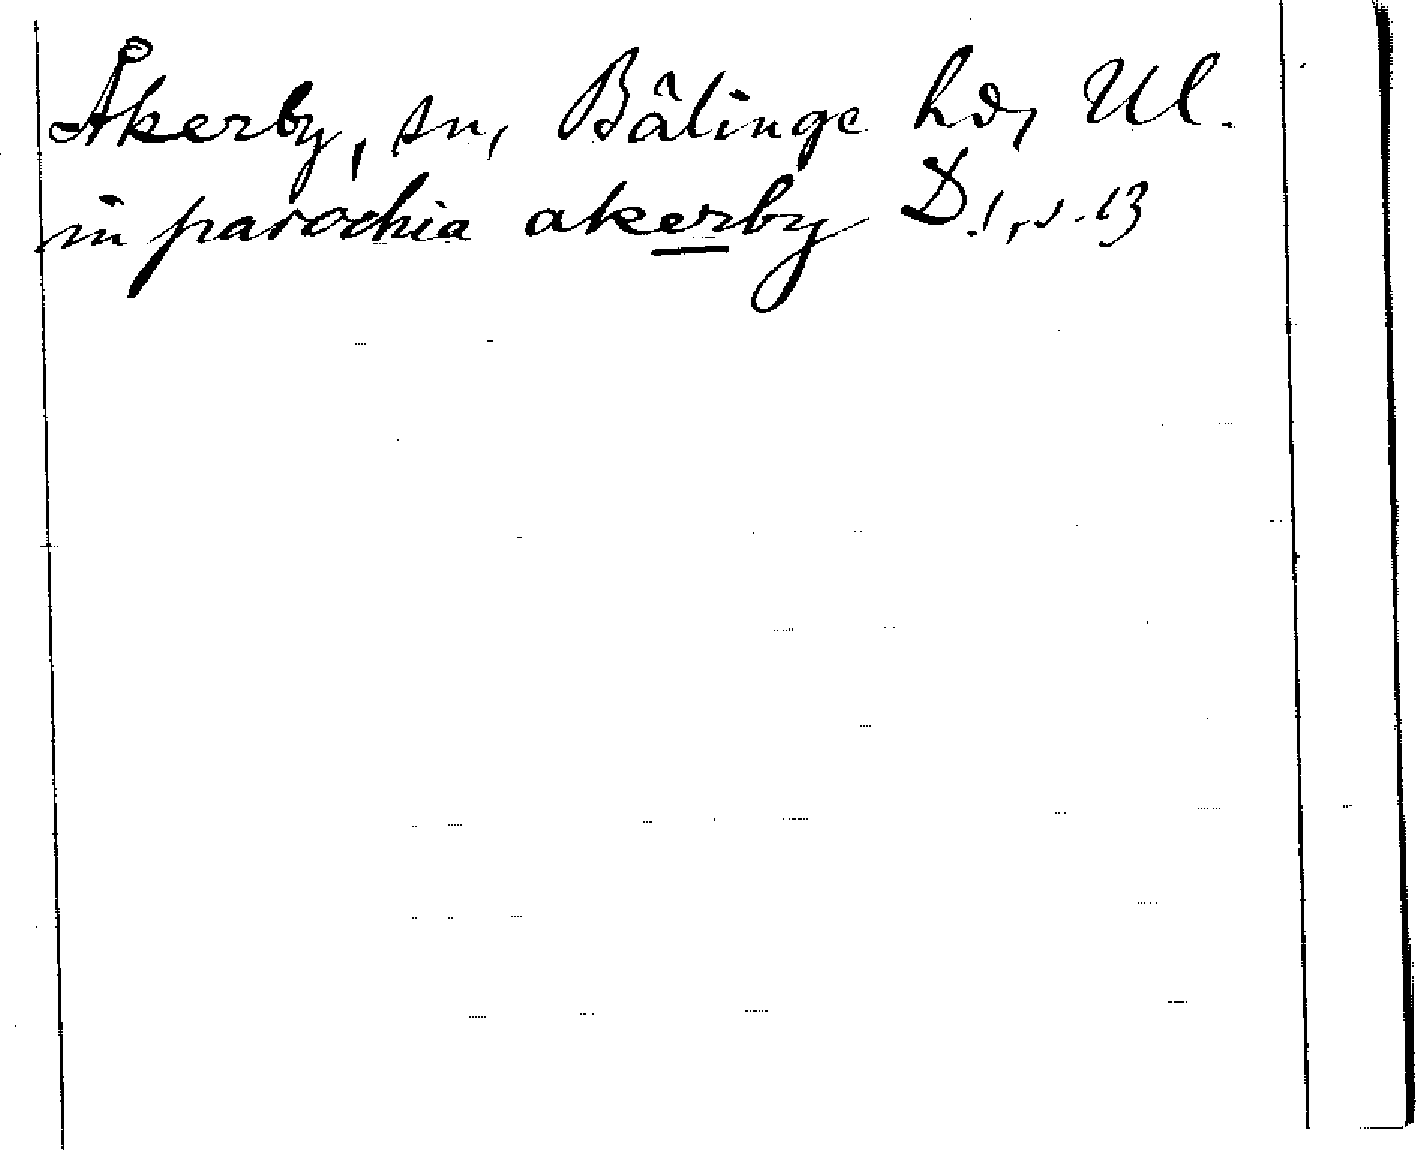 Åkerby, sn, Bälinge hd, Ul.
in parochia akerby D. 1, s. 13